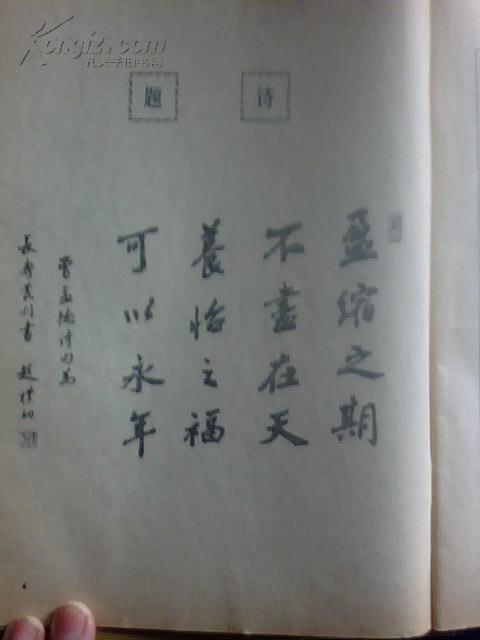 Kongfz.com
孔夫子旧书网
诗题
盈缩之期
不盡在天
養怡之福
可以永年
曹孟德诗句为
長寿叢刊書 趙樸初